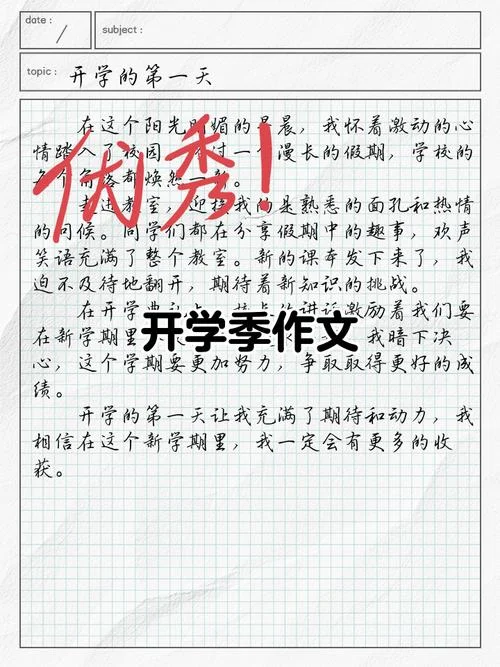 date :
subject :
topic : 开学的第一天
在这个阳光明媚的早晨，我怀着激动的心
情踏入了校园。过一个漫长的假期，学校的
每个角落都焕然一新。
走进教室，迎接我的是熟悉的面孔和热情
的问候。同学们都在分享假期中的趣事，欢声
笑语充满了整个教室。新的课本发下来了，我
迫不及待地翻开，期待着新知识的挑战。
在开学典礼上，校长的讲话激励着我们要
在新学期里 我暗下决
心，这个学期要更加努力，争取取得更好的成
绩。
开学的第一天让我充满了期待和动力，我
相信在这个新学期里，我一定会有更多的收
获。
优秀！
开学季作文